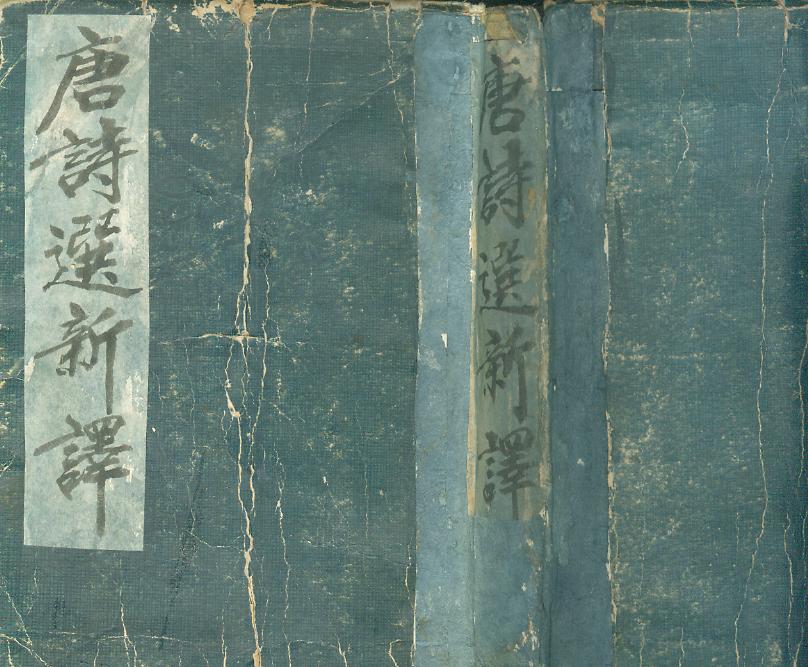 唐詩選新譯
唐詩選新譯